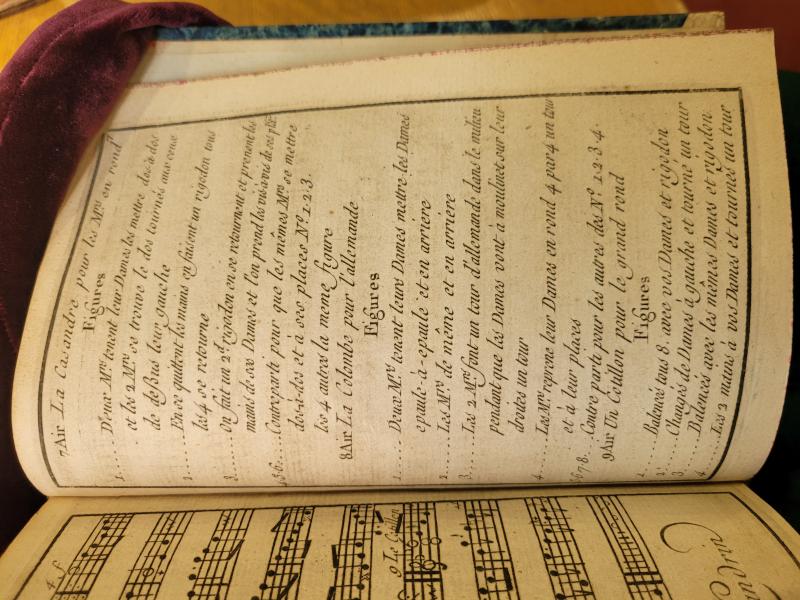 7 Air La Casandre pour les Mrs en rond
Figures
1..... Deux Mrs tenent leur Dames les mettre dos-à-dos
et les 2 Mrs se trouve le dos tournés
de deßus leur gauche
2..... En se quittent les mains en faisent un rigodon tous
les 4 se retourne
3..... On fait un 2d rigodon en se retournent et prenent les
mains de ses Dames et l'on prend les vis-à-vis de
4.5.6.... Contreparti pour que les mêmes Mrs se mettre
dos-à-dos et à ses places No. 1.2.3.
les 4 autres la meme figure
8 Air La Colombe pour l'allemande
Figures
1..... Deux Mrs tenent leurs Dames mettre les Dames
epaule-à-epaule et en arriere
2..... Les Mrs de même et en arriere
3..... Les 2 Mrs font un tour d'allemande dans le milieu
pendant que les Dames vont à moulinet sur leur
droites un tour
4..... Les Mrs reprens leur Dames en rond 4 par 4 un tour
et à leur places
5.6.7.8... Contre parti pour les autres des No. 1.2.3.4.
9 Air Un Cotillon pour le grand rond
Figures
1..... Balencés tous 8. avec vos Dames et rigodon
2..... Changés de Dames à gauche et tourne un tour
3..... Balencés avec les mêmes Dames et rigodon
4..... Les 2 mains à vos Dames et tournés un tour
4 f
9 Le Cotillon